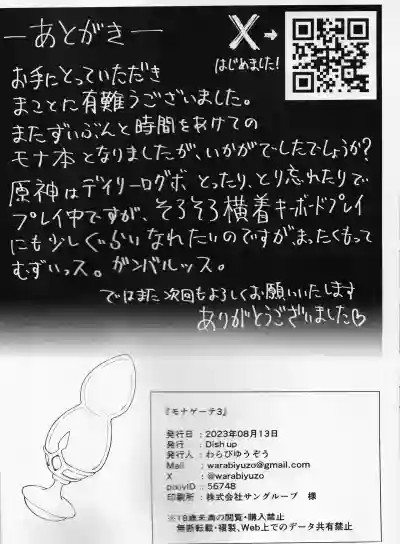 ―あとがき―
X→
はじめました!
お手にとっていただき
まことに有難うございました。
またずいぶんと時間をあけての
モナ本となりましたが、いかがでしたでしょうか?
原神はデイリーログボ とったり、とり忘れたりで
プレイ中ですが、そろそろ横着キーボードプレイ
にも少しぐらいなれたいのですが、まったくもって
むずいっス。ガンバルッス。
ではまた次回もよろしくお願いいたします
ありがとうございました♡
『モナゲーテ3』
発行日 : 2023年08月13日
発行 : Dish up
発行人 : わらびゆうぞう
Mail : warabiyuzo@gmail.com
X : @warabiyuzo
pixivID : 56748
印刷所 : 株式会社サングループ 様
※18歳未満の閲覧・購入禁止
無断転載・複製、Web上でのデータ共有禁止